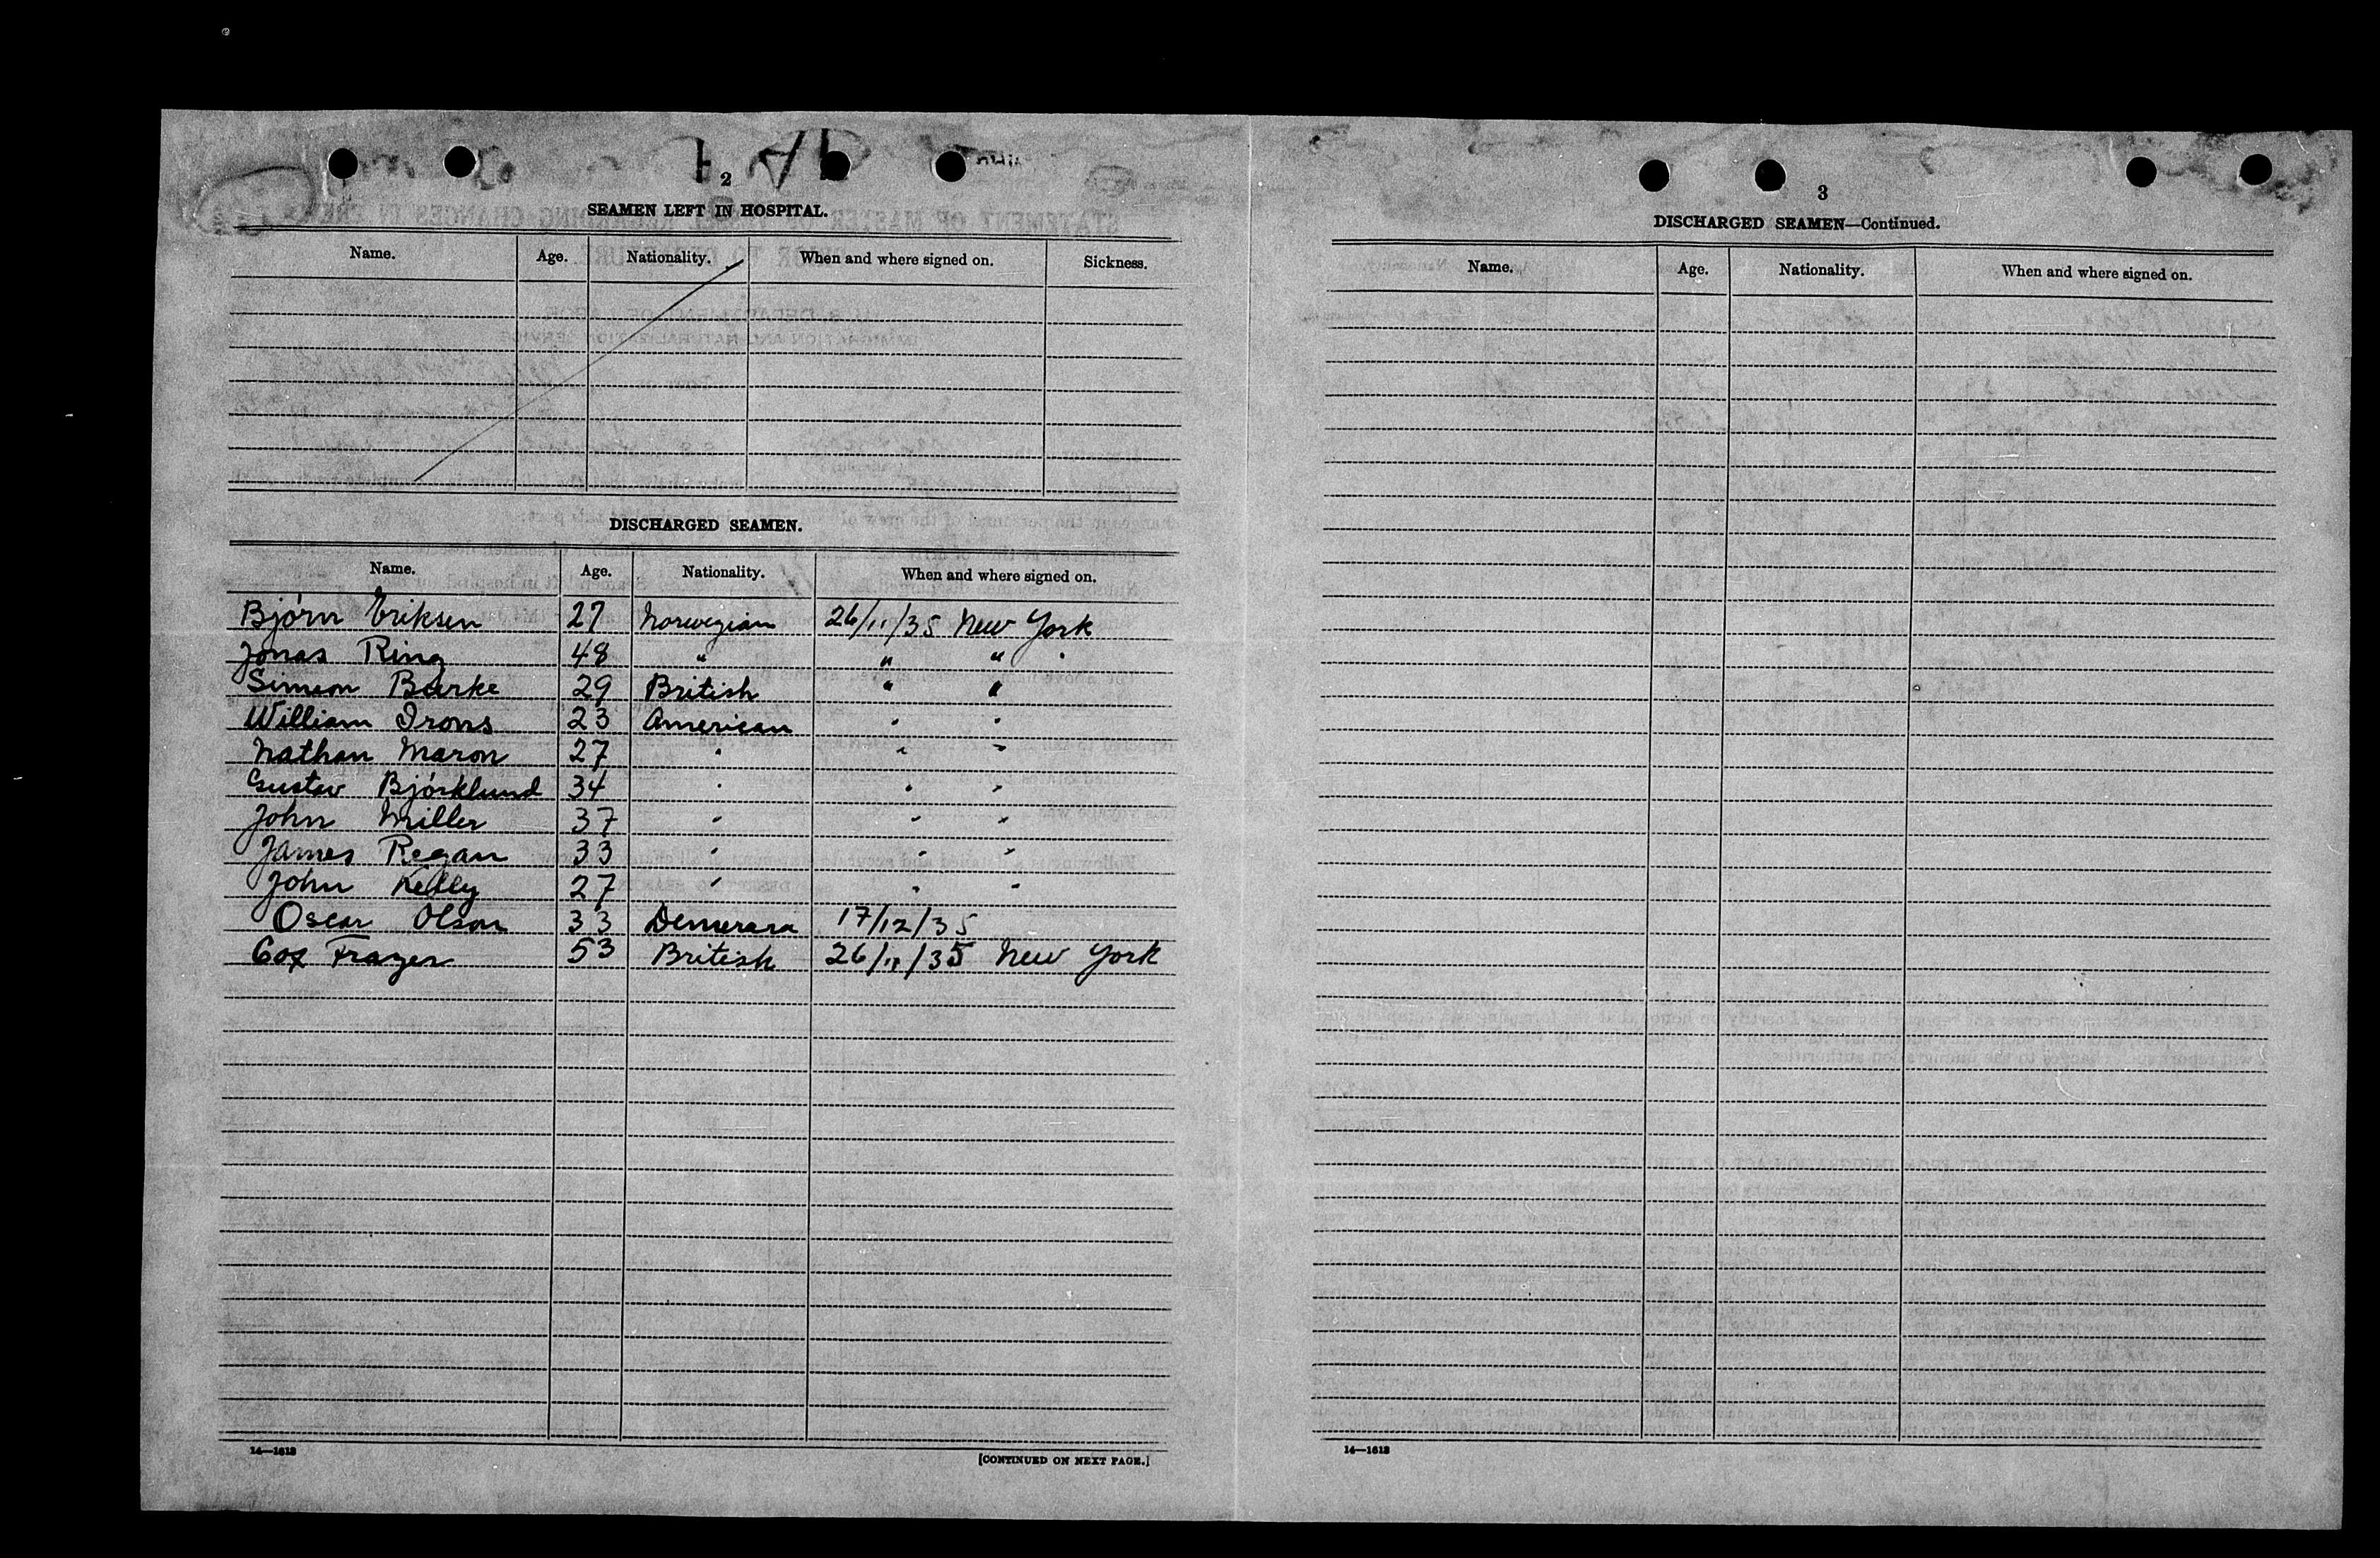 2
SEAMEN LEFT IN HOSPITAL.
Name. Age. Nationality. When and where signed on. Sickness.
DISCHARGED SEAMEN.
Name. Age. Nationality. When and where signed on.
Bjórn Eriksen 27 Norwegian 26/11/35 New York
Jonas Ring 48 " " "
Simeon Burke 29 British " "
William Irons 23 American " "
Nathan Maron 27 " " "
Gustav Bjórklund 34 " " "
John Miller 37 " " "
James Regan 33 " " "
John Kelly 27 " " "
Oscar Olson 33 Demerara 17/12/35
Cox Frazer 53 British 26/11/35 New York
14—1613
[CONTINUED ON NEXT PAGE.]
3
DISCHARGED SEAMEN—Continued.
Name. Age. Nationality. When and where signed on.
14—1613